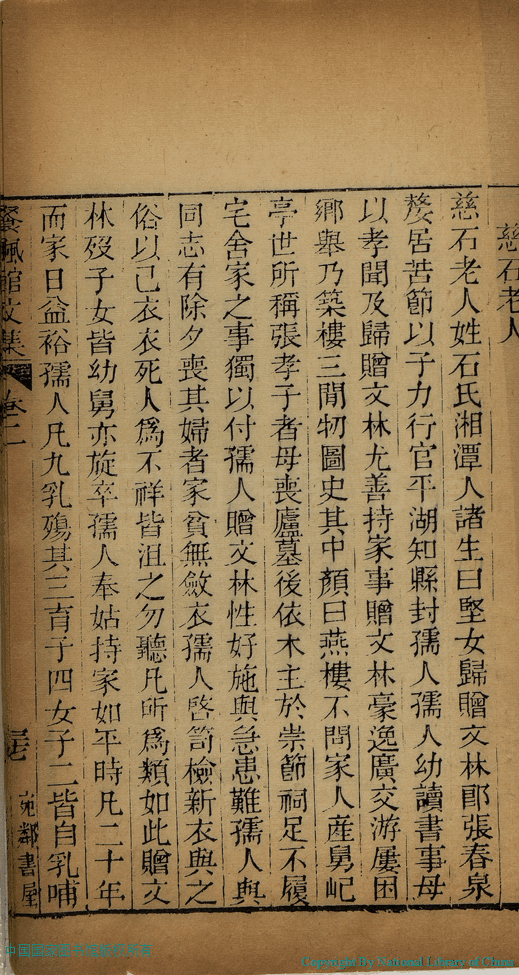 慈石老人
慈石老人姓石氏湘潭人諸生曰堅女歸贈文林郎張春泉
嫠居苦節以子力行官平湖知縣封孺人孺人幼讀書事母
以孝聞及歸贈文林尤善持家事贈文林豪逸廣交游屢困
鄉舉乃築樓三閒牣圖史其中顏曰燕樓不問家人產舅屺
亭世所稱張孝子者母喪廬墓後依木主於崇節祠足不履
宅舍家之事獨以付孺人贈文林性好施與急患難孺人與
同志有除夕喪其婦者家貧無斂衣孺人啓笥檢新衣與之
俗以己衣衣死人爲不祥皆沮之勿聽凡所爲類如此贈文
林歿子女皆幼舅亦旋卒孺人奉姑持家如平時凡二十年
而家日益裕孺人凡九乳殤其三育子四女子二皆自乳哺
館文集 卷二 宛鄰書屋
中国国家
Copyright by National Library of China